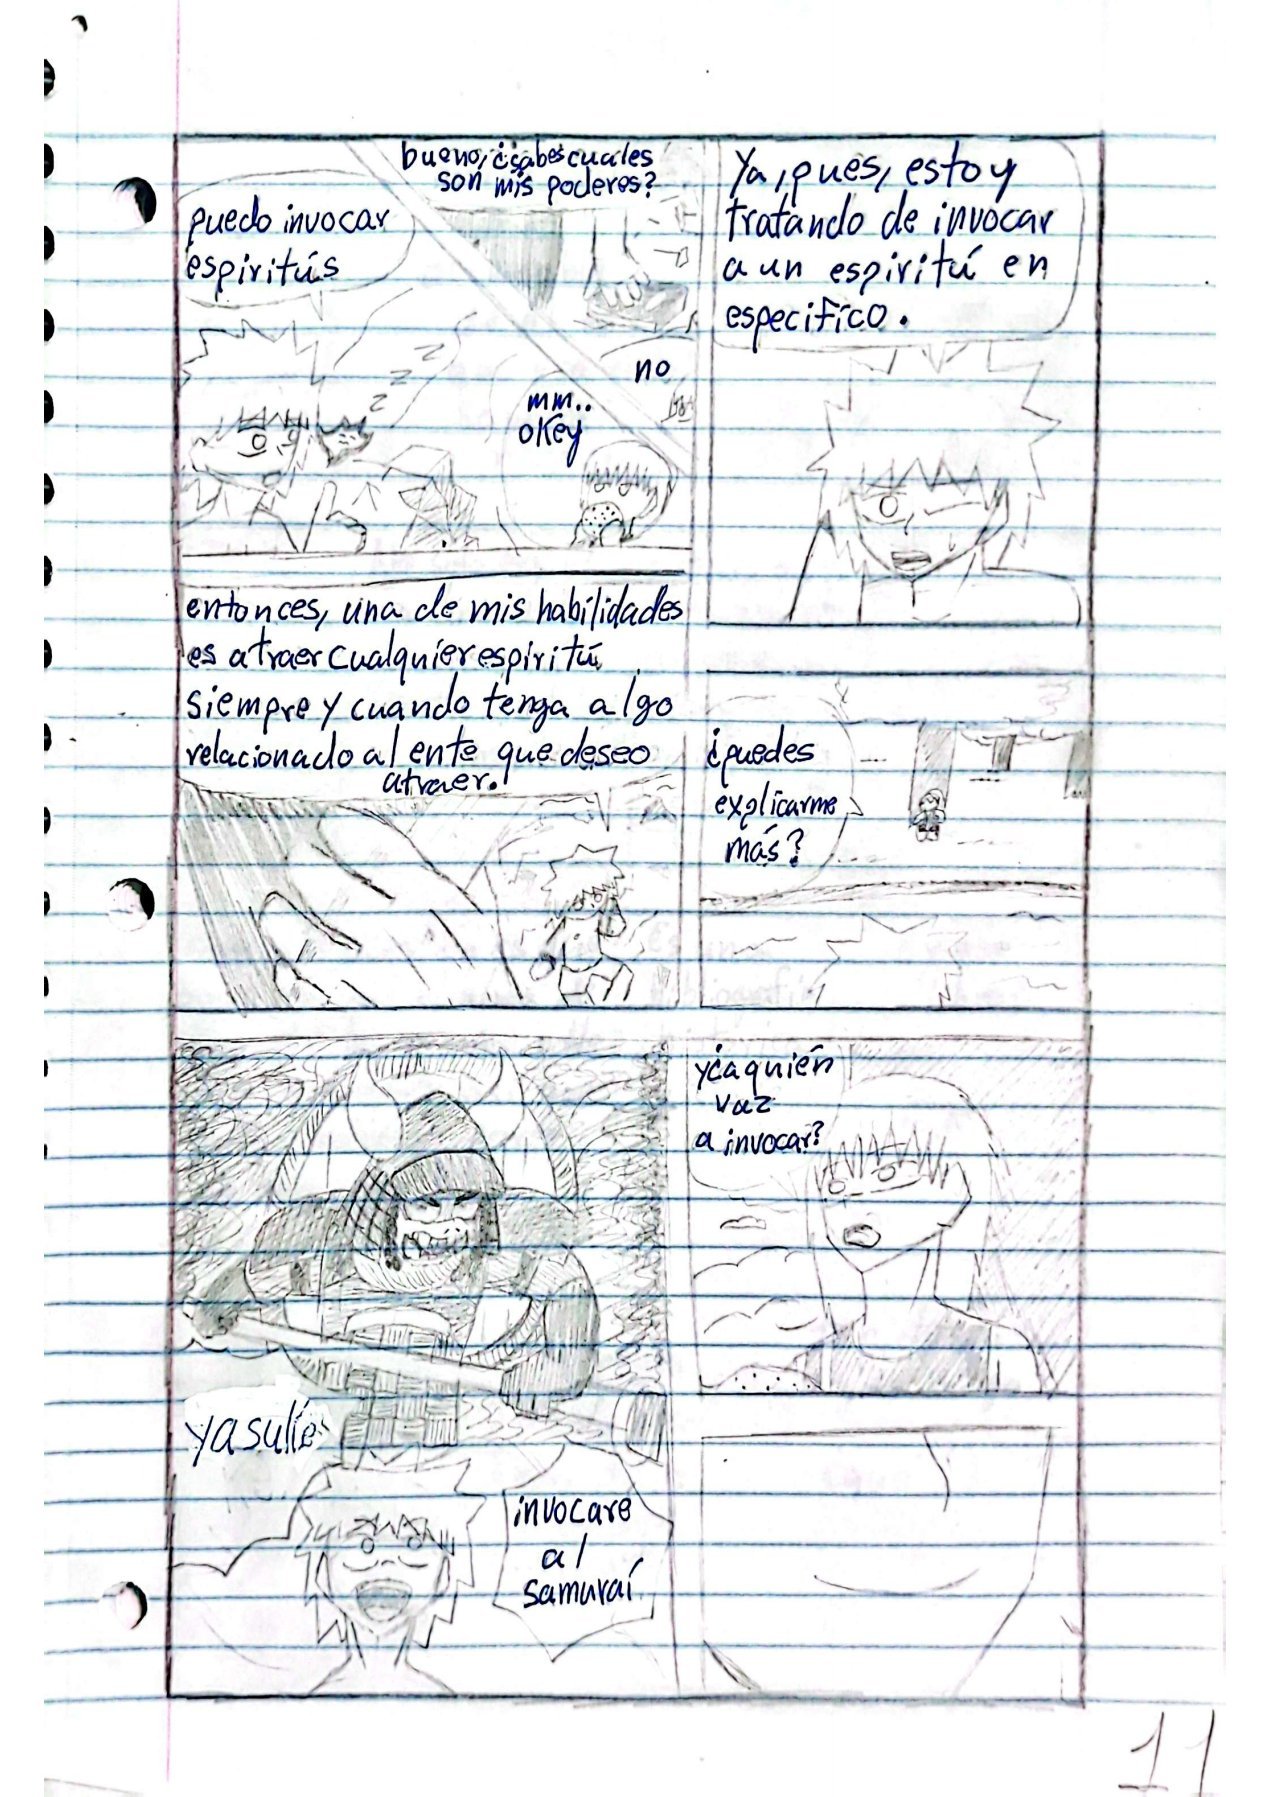 Ya, pues, estoy
tratando de invocar
a un espiritú en
especifíco.
¿puedes
explicarme
más?
bueno, ¿sabes cuales
son mis poderes?
no
puedo invocar
espiritús
z
z
z
mm..
okey
entonces, una de mis habilidades
es atraer cualquier espiritú
siempre y cuando tenga algo
relacionado al ente que deseo
atraer.
y ¿a quién
vaz
a invocar?
invocare
al
samuraí
yasulíe
11